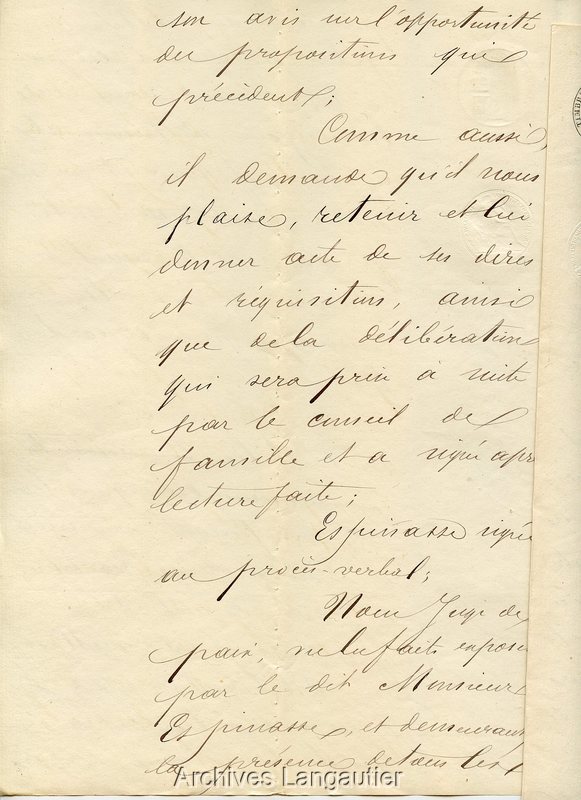 son avis sur l'opportunité
des propositions qui
précèdent;
Comme aussi,
il demande qu'il nous
plaise, retenir et lui
donner acte de ses dires
et réquisitions, ainsi
que de la délibération
qui sera prise à suite
par le conseil de
famille et a signé après
lecture faite;
Espinasse signé
au procès-verbal;
Nous Juge de
paix, sur les faits exposés
par le dit Monsieur
Espinasse, et demeurant
la présence de tous les
Archives Langautier